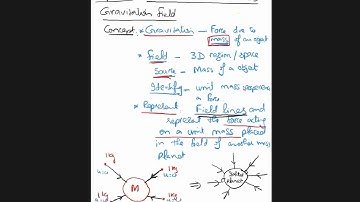 Gravitation Field
Concept:- * Gravitation - Force due to
mass of an object
* Field - 3D region/space
Source - Mass of a object
Identify - unit mass experience
a force
* Represent Field lines and
represent the force acting
on a unit mass placed
in the field of another mass
planet
1kg
1kg
M
⇒
planet
1kg
1kg